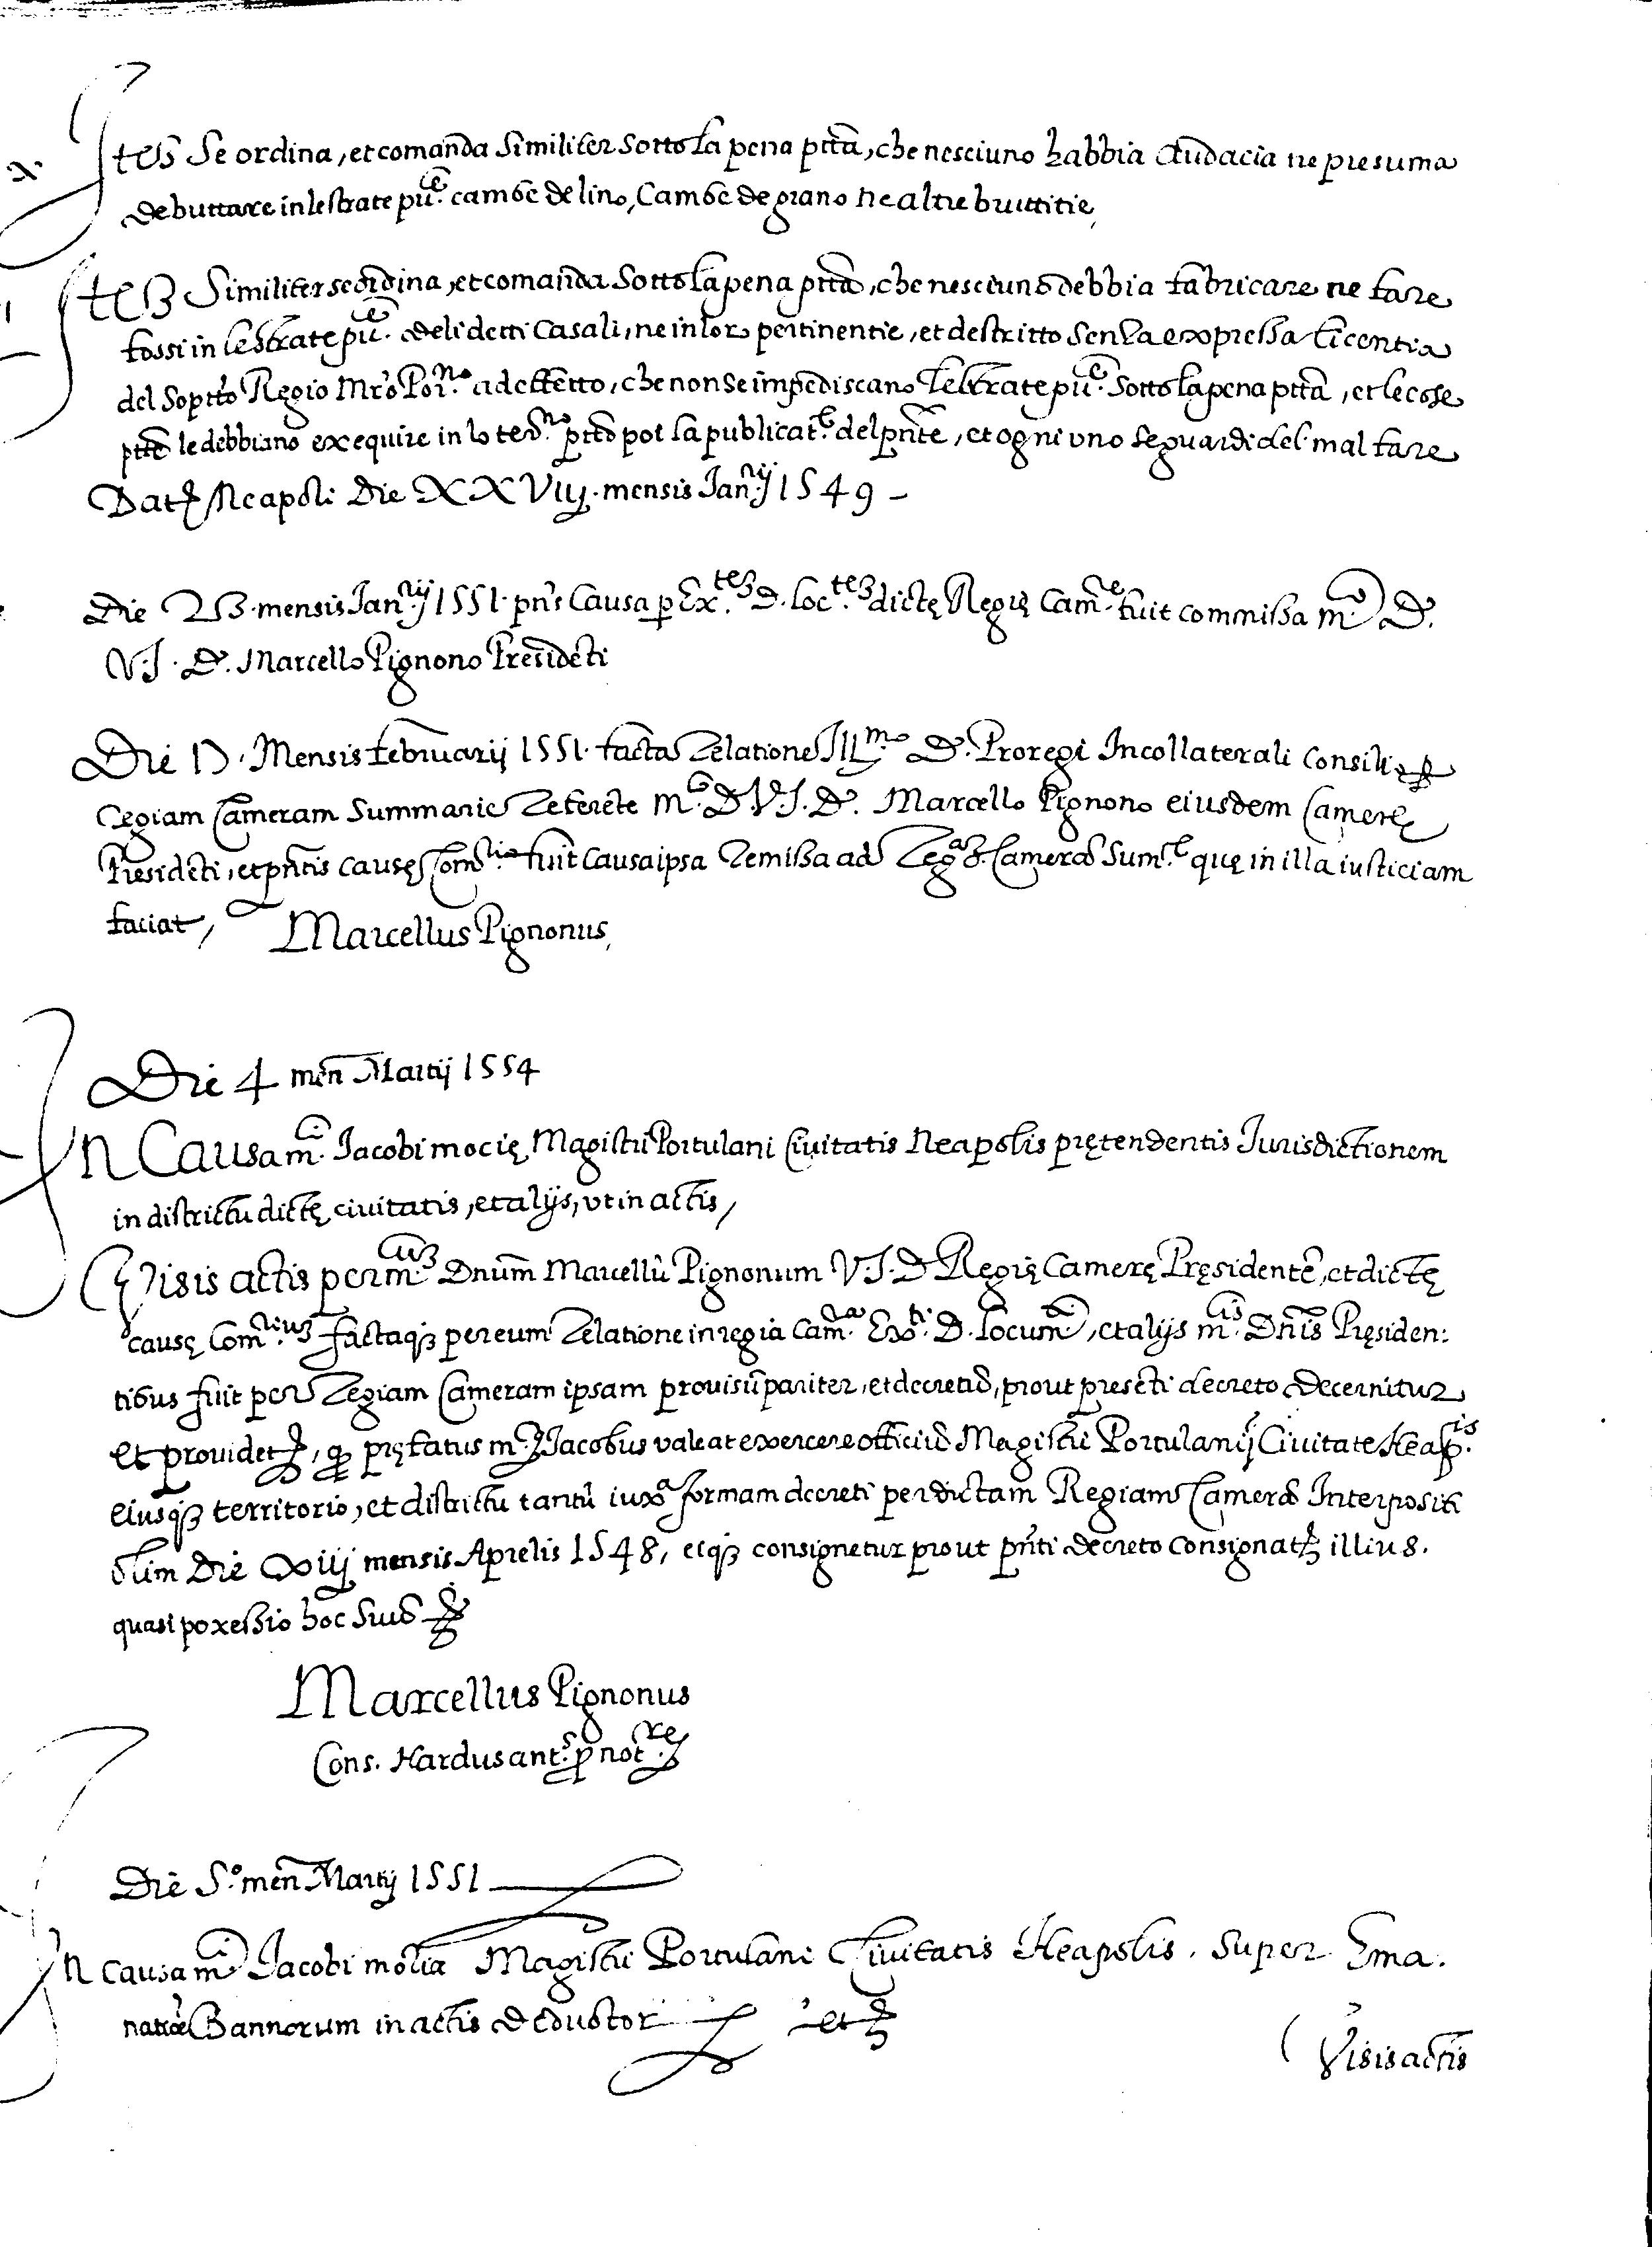 Ites Se ordina, et comanda Similiter Sotto la pena ptta, che nesciuno habbia Audacia ne presuma
de buttare in le strate pu.ce cambe de lino, Cambe de grano ne altre bruttitie,
Ites Similiter se ordina, et comanda Sotto la pena ptta, che nesciuno debbia fabricare ne fare
fossi in le strate pu.ce deli detti Casali, ne in lor pertinentie, et destritto Senza expressa licentia
del Soptto Regio Mro Por.no ad effetto, che non Se impediscano le strate pu.ce Sotto la pena ptta, et le cose
ptte le debbiano exequire in lo ter.no ptto poi la publicat.e del pnte, et ogni uno Se guardi del mal fare
Dat Neapoli Die XXViij. mensis Jan.rij 1549 –
Die mensis Jan.rij 1551. pns Causa p Ex.tes D. Loc.tes dictę Regię Cam.re fuit commissa m.co D.
V. J. D. Marcello Pignono Presideti
Die mensis februarij 1551. facta relatione Ill.mo D. Proregi In collaterali Consilio p
regiam Cameram Summarie referete m.co D. V. J. D. Marcello Pignono eiusdem Camerę
Presideti, et pntis causę Com.rio fuit Causa ipsa remissa ad reg.am Camera Sum.e quę in illa iusticiam
faciat, Marcellus Pignonus,
Die 4 men Martij 1554
In Causa m.ci Jacobi mocię Magistri Portulani Civitatis Neapolis prętendentis Jurisdictionem
in districtu dictę civitatis, et alijs, vt in actis,
Visis actis per m.cum Dnum Marcellu Pignonum V. J. D. Regię Camerę Pręsidente, et dictę
causę Com.rium factaq3 per eum relatione in regia Cam.ra Ex.ti D. Locum, et alijs m.cis Dnis Pręsiden:
tibus fuit per regiam Cameram ipsam provisu pariter, et decretu, prout preseti decreto decernitur
et providet, q prę fatus m. Jacobus valeat exercere officiu Magistri Portulani Civitate Neap.is
eiusq3 territorio, et districtu tantu iuxa formam decreti per dictam Regiam Camera Interpositi
olim Die xiij mensis Aprelis 1548, eiq3 consignetur prout pnti decreto consignat illius.
quasi poxessio hoc Suu
Marcellus Pignonus
Cons. Nardus ant.s p not.re
Die 5.o men Martij 1551
In causa m.ci Jacobi mocia Magistri Portulani Civitatis Neapolis. Super Ema.
natioe Bannorum in actis deductor et
Visis actis